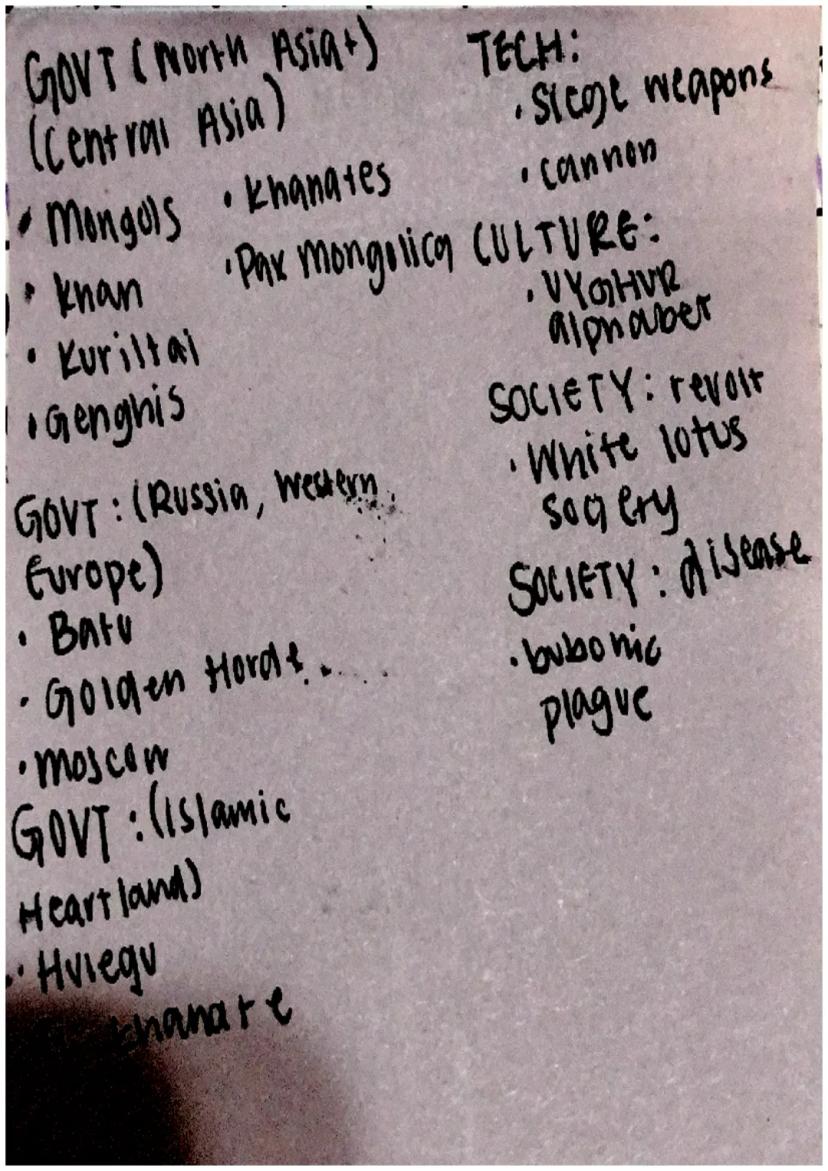 GOVT (North Asia+)
(Central Asia)
• Mongols
• Khan
• Kuriltai
• Genghis
• Khanates
• Pax Mongolica
GOVT: (Russia, Western
Europe)
• Batu
• Golden Horde
• Moscow
GOVT: (Islamic
Heartland)
• Hulegu
khanate
TECH:
• Siege weapons
• cannon
CULTURE:
• UYGHUR
alphabet
SOCIETY: revolt
• White lotus
society
SOCIETY: disease
• bubonic
plague